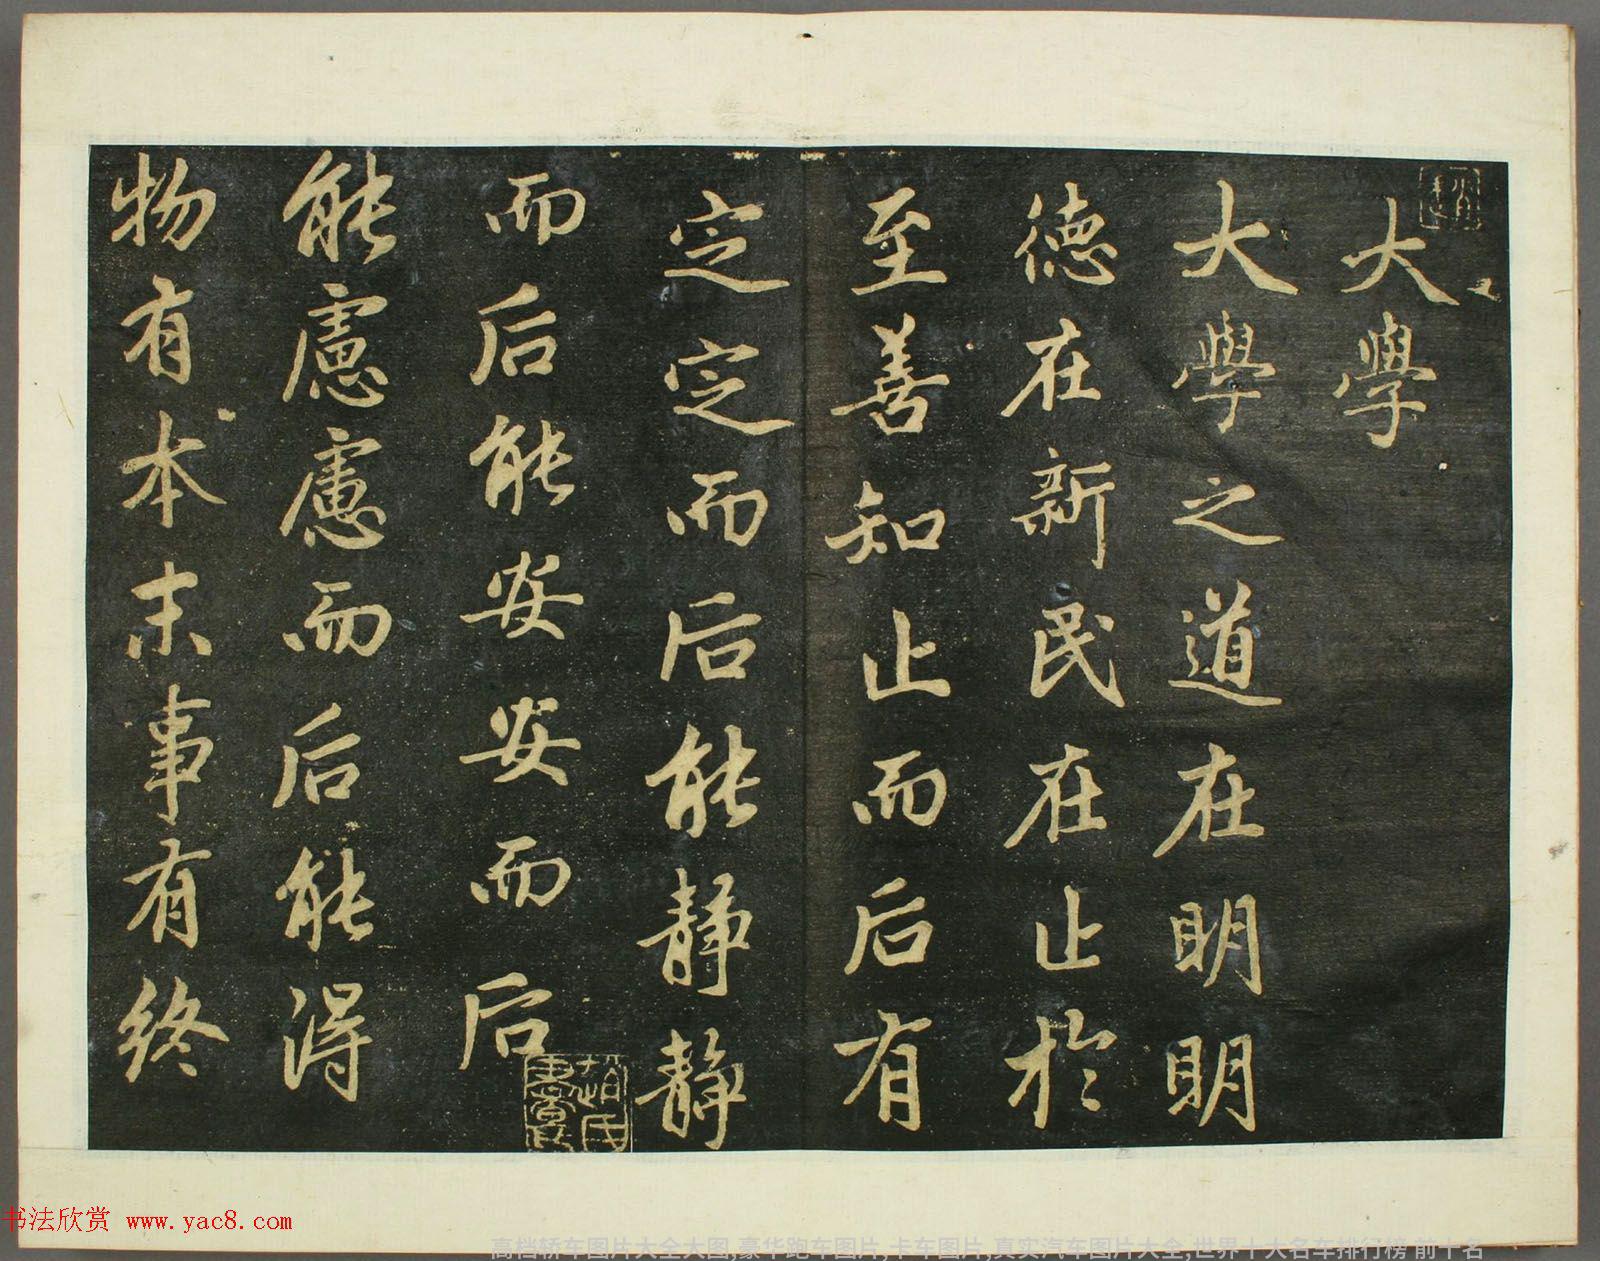 大學
大學之道在明明
德在新民在止於
至善知止而后有
定定而后能静静
而后能安安而后
能慮慮而后能得
物有本末事有終
書法欣赏 www.yac8.com
高档轿车图片大全大图,豪华跑车图片,卡车图片,真实汽车图片大全,世界十大名车排行榜 前十名